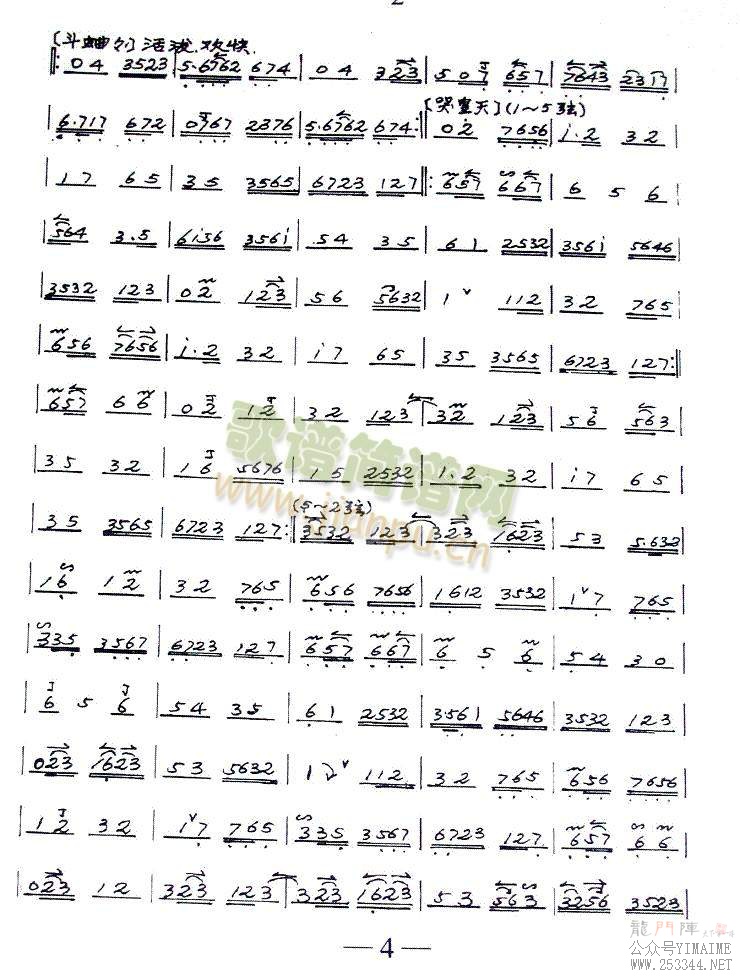 [斗曲介]活泼.欢快.
‖: 04 3523 | 5·6762 674 | 04 323 | 507 657 | 7643 2317 |
[哭皇天](1~5弦)
6·717 672 | 0767 2376 | 5·6762 674 :‖ 02 7656 | i·2 32 |
| 17 65 | 35 3565 | 6723 127 ‖: 657 667 | 6 5 6 |
| 564 3·5 | 6i56 356i | 54 35 | 61 2532 | 356i 5646 |
| 3532 123 | 02 123 | 56 5632 | 1ᵛ 112 | 32 765 |
| 656 7656 | i·2 32 | i7 65 | 35 3565 | 6723 127 :‖
| 657 66 | 02 12 | 32 123 | 32 123 | 56 563 |
| 35 32 | 16 5676 | 15 2532 | 1·2 32 | i7 65 |
(5~2弦)
| 35 3565 | 6723 127 :‖ 3532 123 | 323 1623 | 53 5·632 |
| 16 12 | 32 765 | 656 7656 | 1612 3532 | 1ᵛ7 765 |
| 335 3567 | 6723 127 | 657 667 | 6 5 6 | 54 30 |
| 6 5 6 | 54 35 | 61 2532 | 3·561 5646 | 3532 123 |
| 023 1623 | 53 5632 | 1ᵛ 112 | 32 765 | 656 7656 |
| 12 32 | 1ᵛ7 765 | 335 3567 | 6723 127 | 657 66 |
| 023 12 | 323 123 | 323 1623 | 53 563 | 3256 3523 |
— 4 —
歌谱简谱网
www.jianpu.cn
龍門陣
公众号YIMAIME
www.253344.NET